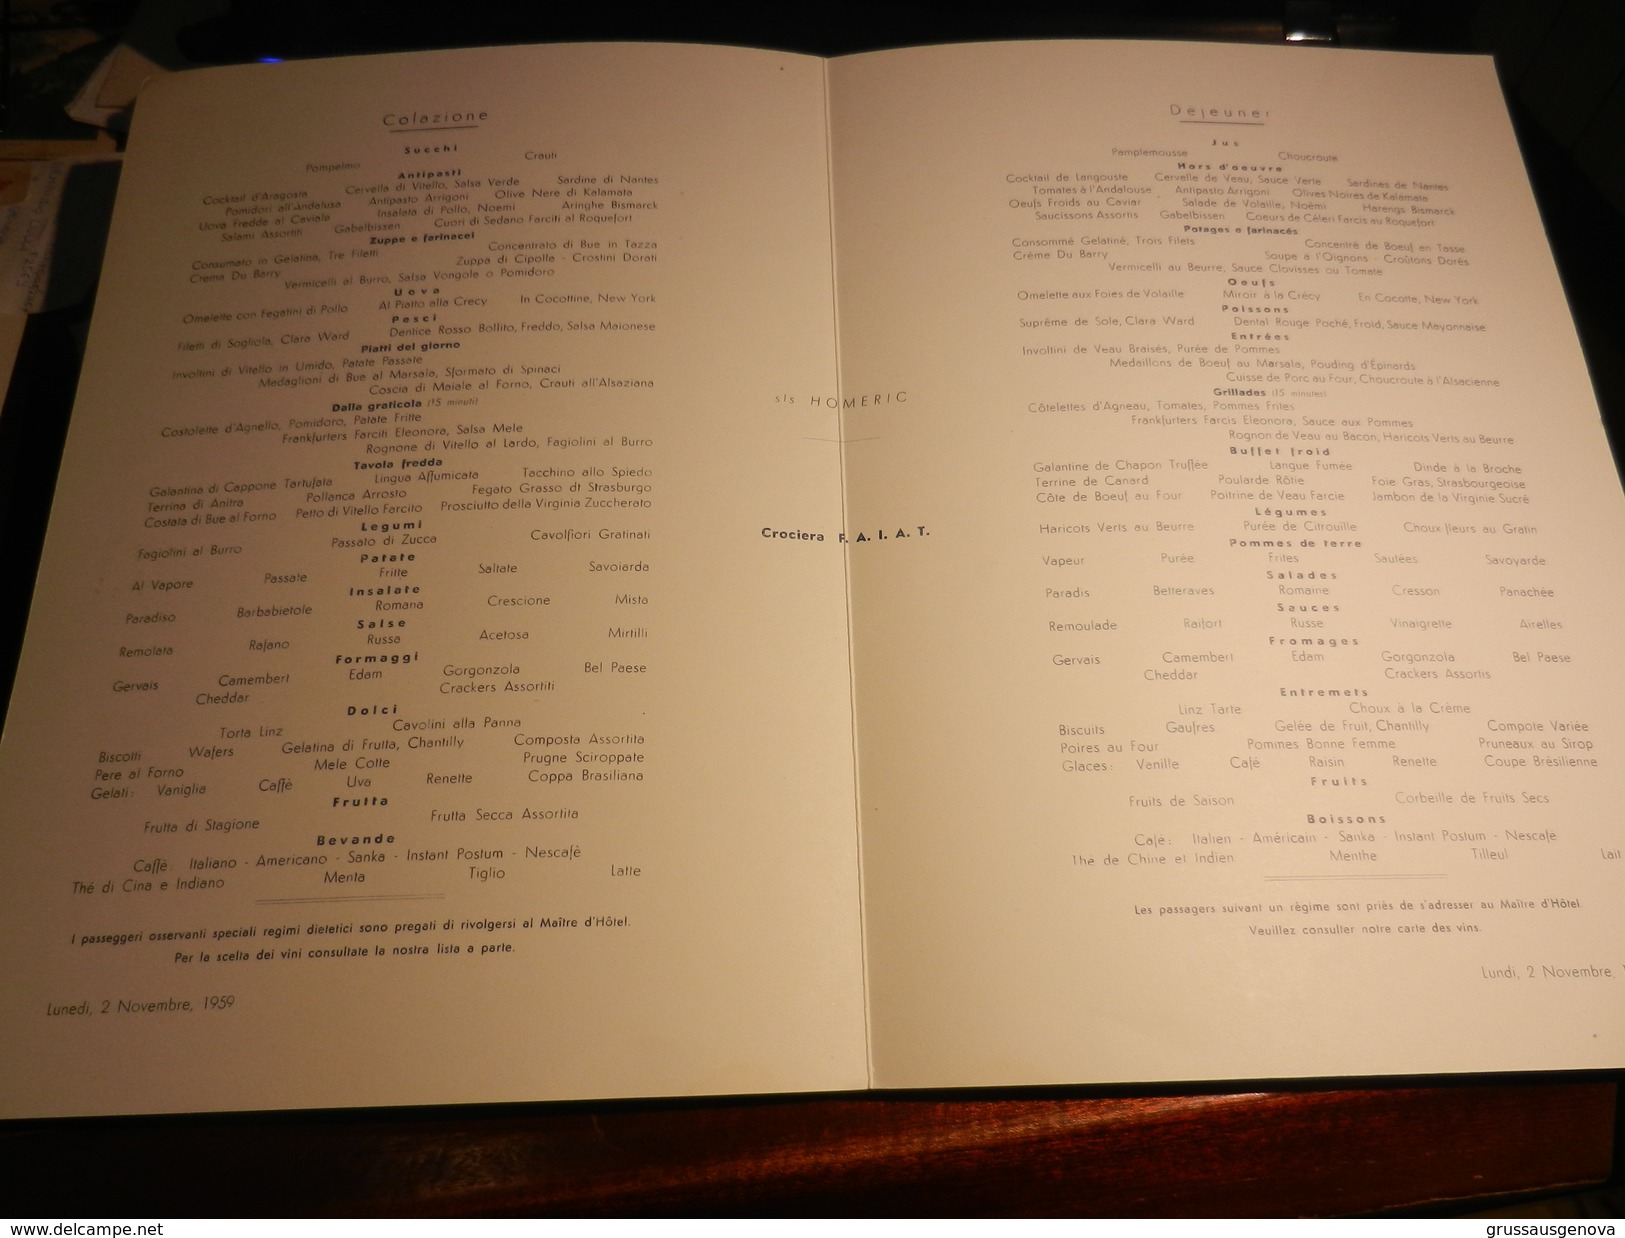 Colazione
Succhi
Pompelmo Crauti
Antipasti
Cocktail d'Aragosta Cervella di Vitello, Salsa Verde Sardine di Nantes
Pomidori all'Andalusa Antipasto Arrigoni Olive Nere di Kalamata
Uova Fredde al Caviale Insalata di Pollo, Noemi Aringhe Bismarck
Salami Assortiti Gabelbissen Cuori di Sedano Farciti al Roquefort
Zuppe e farinacei
Consumato in Gelatina, Tre Filetti Concentrato di Bue in Tazza
Crema Du Barry Zuppa di Cipolle - Crostini Dorati
Vermicelli al Burro, Salsa Vongole o Pomidoro
Uova
Omelette con Fegatini di Pollo Al Piatto alla Crecy In Cocottine, New York
Pesci
Filetti di Sogliola, Clara Ward Dentice Rosso Bollito, Freddo, Salsa Maionese
Piatti del giorno
Involtini di Vitello in Umido, Patate Passate
Medaglioni di Bue al Marsala, Sformato di Spinaci
Coscia di Maiale al Forno, Crauti all'Alsaziana
Dalla graticola (15 minuti)
Costolette d'Agnello, Pomidoro, Patate Fritte
Frankfurters Farciti Eleonora, Salsa Mele
Rognone di Vitello al Lardo, Fagiolini al Burro
Tavola fredda
Galantina di Cappone Tartufata Lingua Affumicata Tacchino allo Spiedo
Terrina di Anitra Pollanca Arrosto Fegato Grasso di Strasburgo
Costata di Bue al Forno Petto di Vitello Farcito Prosciutto della Virginia Zuccherato
Legumi
Fagiolini al Burro Passato di Zucca Cavolfiori Gratinati
Patate
Al Vapore Passate Fritte Saltate Savoiarda
Insalate
Paradiso Barbabietole Romana Crescione Mista
Salse
Remolata Rafano Russa Acetosa Mirtilli
Formaggi
Gervais Camembert Edam Gorgonzola Bel Paese
Cheddar Crackers Assortiti
Dolci
Torta Linz Cavolini alla Panna
Biscotti Wafers Gelatina di Frutta, Chantilly Composta Assortita
Pere al Forno Mele Cotte Prugne Sciroppate
Gelati: Vaniglia Caffè Uva Renette Coppa Brasiliana
Frutta
Frutta di Stagione Frutta Secca Assortita
Bevande
Caffè: Italiano - Americano - Sanka - Instant Postum - Nescafè
Thé di Cina e Indiano Menta Tiglio Latte
I passeggeri osservanti speciali regimi dietetici sono pregati di rivolgersi al Maître d'Hôtel.
Per la scelta dei vini consultate la nostra lista a parte.
Lunedi, 2 Novembre, 1959
s/s HOMERIC
Crociera F. A. I. A. T.
Dejeuner
Jus
Pamplemousse Choucroute
Hors d'oeuvre
Cocktail de Langouste Cervelle de Veau, Sauce Verte Sardines de Nantes
Tomates à l'Andalouse Antipasto Arrigoni Olives Noires de Kalamata
Oeufs Froids au Caviar Salade de Volaille, Noëmi Harengs Bismarck
Saucissons Assortis Gabelbissen Coeurs de Céleri Farcis au Roquefort
Potages e farinacés
Consommé Gelatiné, Trois Filets Concentré de Boeuf en Tasse
Crème Du Barry Soupe à l'Oignons - Croûtons Dorés
Vermicelli au Beurre, Sauce Clovisses ou Tomate
Oeufs
Omelette aux Foies de Volaille Miroir à la Crécy En Cocotte, New York
Poissons
Suprême de Sole, Clara Ward Dental Rouge Poché, Froid, Sauce Mayonnaise
Entrées
Involtini de Veau Braisés, Purée de Pommes
Medaillons de Boeuf au Marsala, Pouding d'Épinards
Cuisse de Porc au Four, Choucroute à l'Alsacienne
Grillades (15 minutes)
Côtelettes d'Agneau, Tomates, Pommes Frites
Frankfurters Farcis Eleonora, Sauce aux Pommes
Rognon de Veau au Bacon, Haricots Verts au Beurre
Buffet froid
Galantine de Chapon Truffée Langue Fumée Dinde à la Broche
Terrine de Canard Poularde Rôtie Foie Gras, Strasbourgeoise
Côte de Boeuf au Four Poitrine de Veau Farcie Jambon de la Virginie Sucré
Légumes
Haricots Verts au Beurre Purée de Citrouille Choux fleurs au Gratin
Pommes de terre
Vapeur Purée Frites Sautées Savoyarde
Salades
Paradis Betteraves Romaine Cresson Panachée
Sauces
Remoulade Raifort Russe Vinaigrette Airelles
Fromages
Gervais Camembert Edam Gorgonzola Bel Paese
Cheddar Crackers Assortis
Entremets
Linz Tarte Choux à la Crème
Biscuits Gaufres Gelée de Fruit, Chantilly Compote Variée
Poires au Four Pommes Bonne Femme Pruneaux au Sirop
Glaces: Vanille Café Raisin Renette Coupe Brésilienne
Fruits
Fruits de Saison Corbeille de Fruits Secs
Boissons
Café: Italien - Américain - Sanka - Instant Postum - Nescafè
Thé de Chine et Indien Menthe Tilleul Lait
Les passagers suivant un régime sont priés de s'adresser au Maître d'Hôtel
Veuillez consulter notre carte des vins.
Lundi, 2 Novembre,
www.delcampe.net
grussausgenova